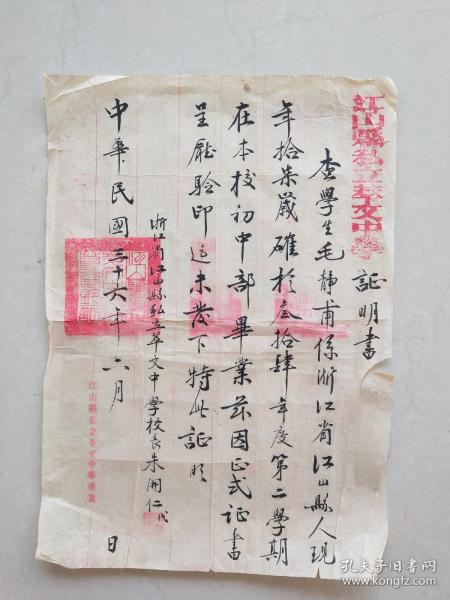 江山縣私立莘文中學
證明書
查學生毛靜甫係浙江省江山縣人現
年拾柒歲確於叁拾肆年度第二學期
在本校初中部畢業茲因正式證書
呈廳驗印迄未發下特此證明
浙江省江山縣私立莘文中學校長朱開仁代
中華民國三十六年六月 日
江山縣私立莘文中學
孔夫子旧书网
www.kongfz.com